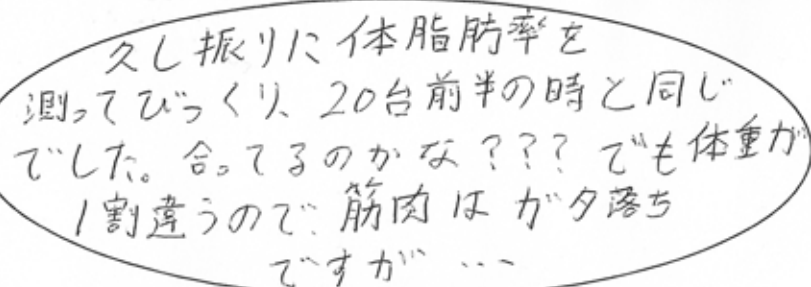 久し振りに体脂肪率を
測ってびっくり、20台前半の時と同じ
でした。合ってるのかな???でも体重が
1割違うので、筋肉はガタ落ち
ですが…